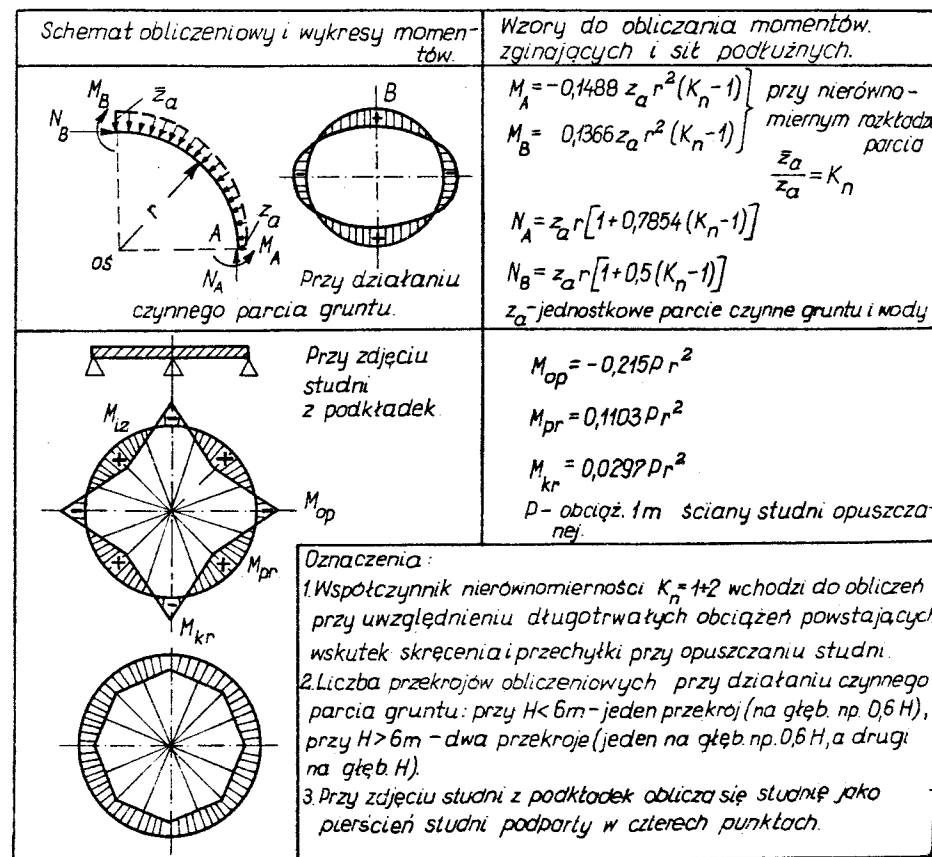 Schemat obliczeniowy i wykresy momen-
tów.
Wzory do obliczania momentów.
zginających i sił podłużnych.
M_B z̄_a
N_B
r
A
z_a
M_A
oś
N_A
B
+
+
-
-
Przy działaniu
czynnego parcia gruntu.
M_A = -0,1488 z_a r² (K_n-1)
M_B = 0,1366 z_a r² (K_n-1)
przy nierówno-
miernym rozkładzie
parcia
z̄_a/z_a = K_n
N_A = z_a r[1+0,7854(K_n-1)]
N_B = z_a r[1+0,5(K_n-1)]
z_a-jednostkowe parcie czynne gruntu i wody
Przy zdjęciu
studni
z podkładek.
M_iz
M_op
M_pr
M_kr
+
+
+
+
-
-
-
-
M_op = -0,215P r²
M_pr = 0,1103 P r²
M_kr = 0,0297 P r²
P- obciąż. 1m ściany studni opuszcza-
nej.
Oznaczenia:
1. Współczynnik nierównomierności K_n=1÷2 wchodzi do obliczeń
przy uwzględnieniu długotrwałych obciążeń powstających
wskutek skręcenia i przechyłki przy opuszczaniu studni.
2. Liczba przekrojów obliczeniowych przy działaniu czynnego
parcia gruntu: przy H<6m-jeden przekrój (na głęb. np. 0,6 H),
przy H>6m - dwa przekroje (jeden na głęb. np. 0,6 H, a drugi
na głęb. H).
3. Przy zdjęciu studni z podkładek oblicza się studnię jako
pierścień studni podparty w czterech punktach.